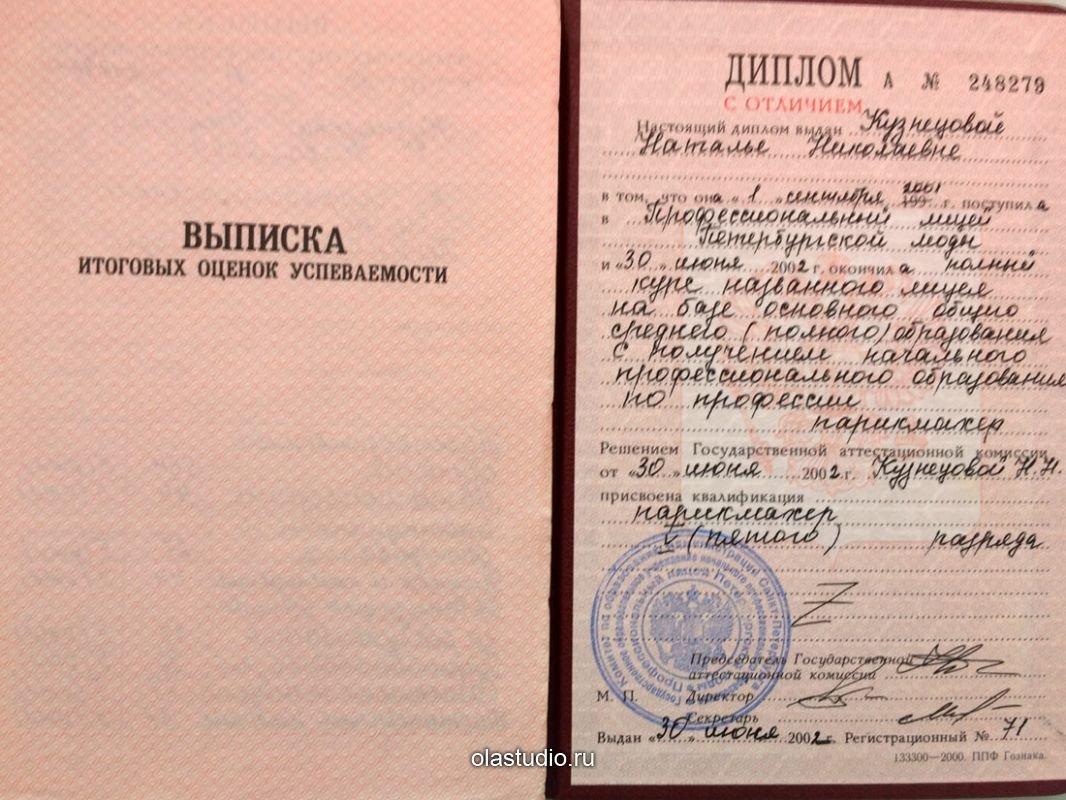 ВЫПИСКА
ИТОГОВЫХ ОЦЕНОК УСПЕВАЕМОСТИ
ДИПЛОМ А № 248279
С ОТЛИЧИЕМ
Настоящий диплом выдан Кузнецовой
Наталье Николаевне
в том, что она « 1 » сентября 2001 199 г. поступила
в Профессиональный лицей
Петербургской моды
и «30» июня 2002 г. окончила полный
курс названного лицея
на базе основного общего
среднего (полного) образования
с получением начального
профессионального образования
по профессии
парикмахер
Решением Государственной аттестационной комиссии
от «30» июня 2002 г. Кузнецовой Н.Н.
присвоена квалификация
парикмахер
5 (пятого) разряда
Председатель Государственной
аттестационной комиссии
М. П. Директор
Секретарь
Выдан «30» июня 2002 г. Регистрационный № 71
133300—2000. ППФ Гознака.
olastudio.ru